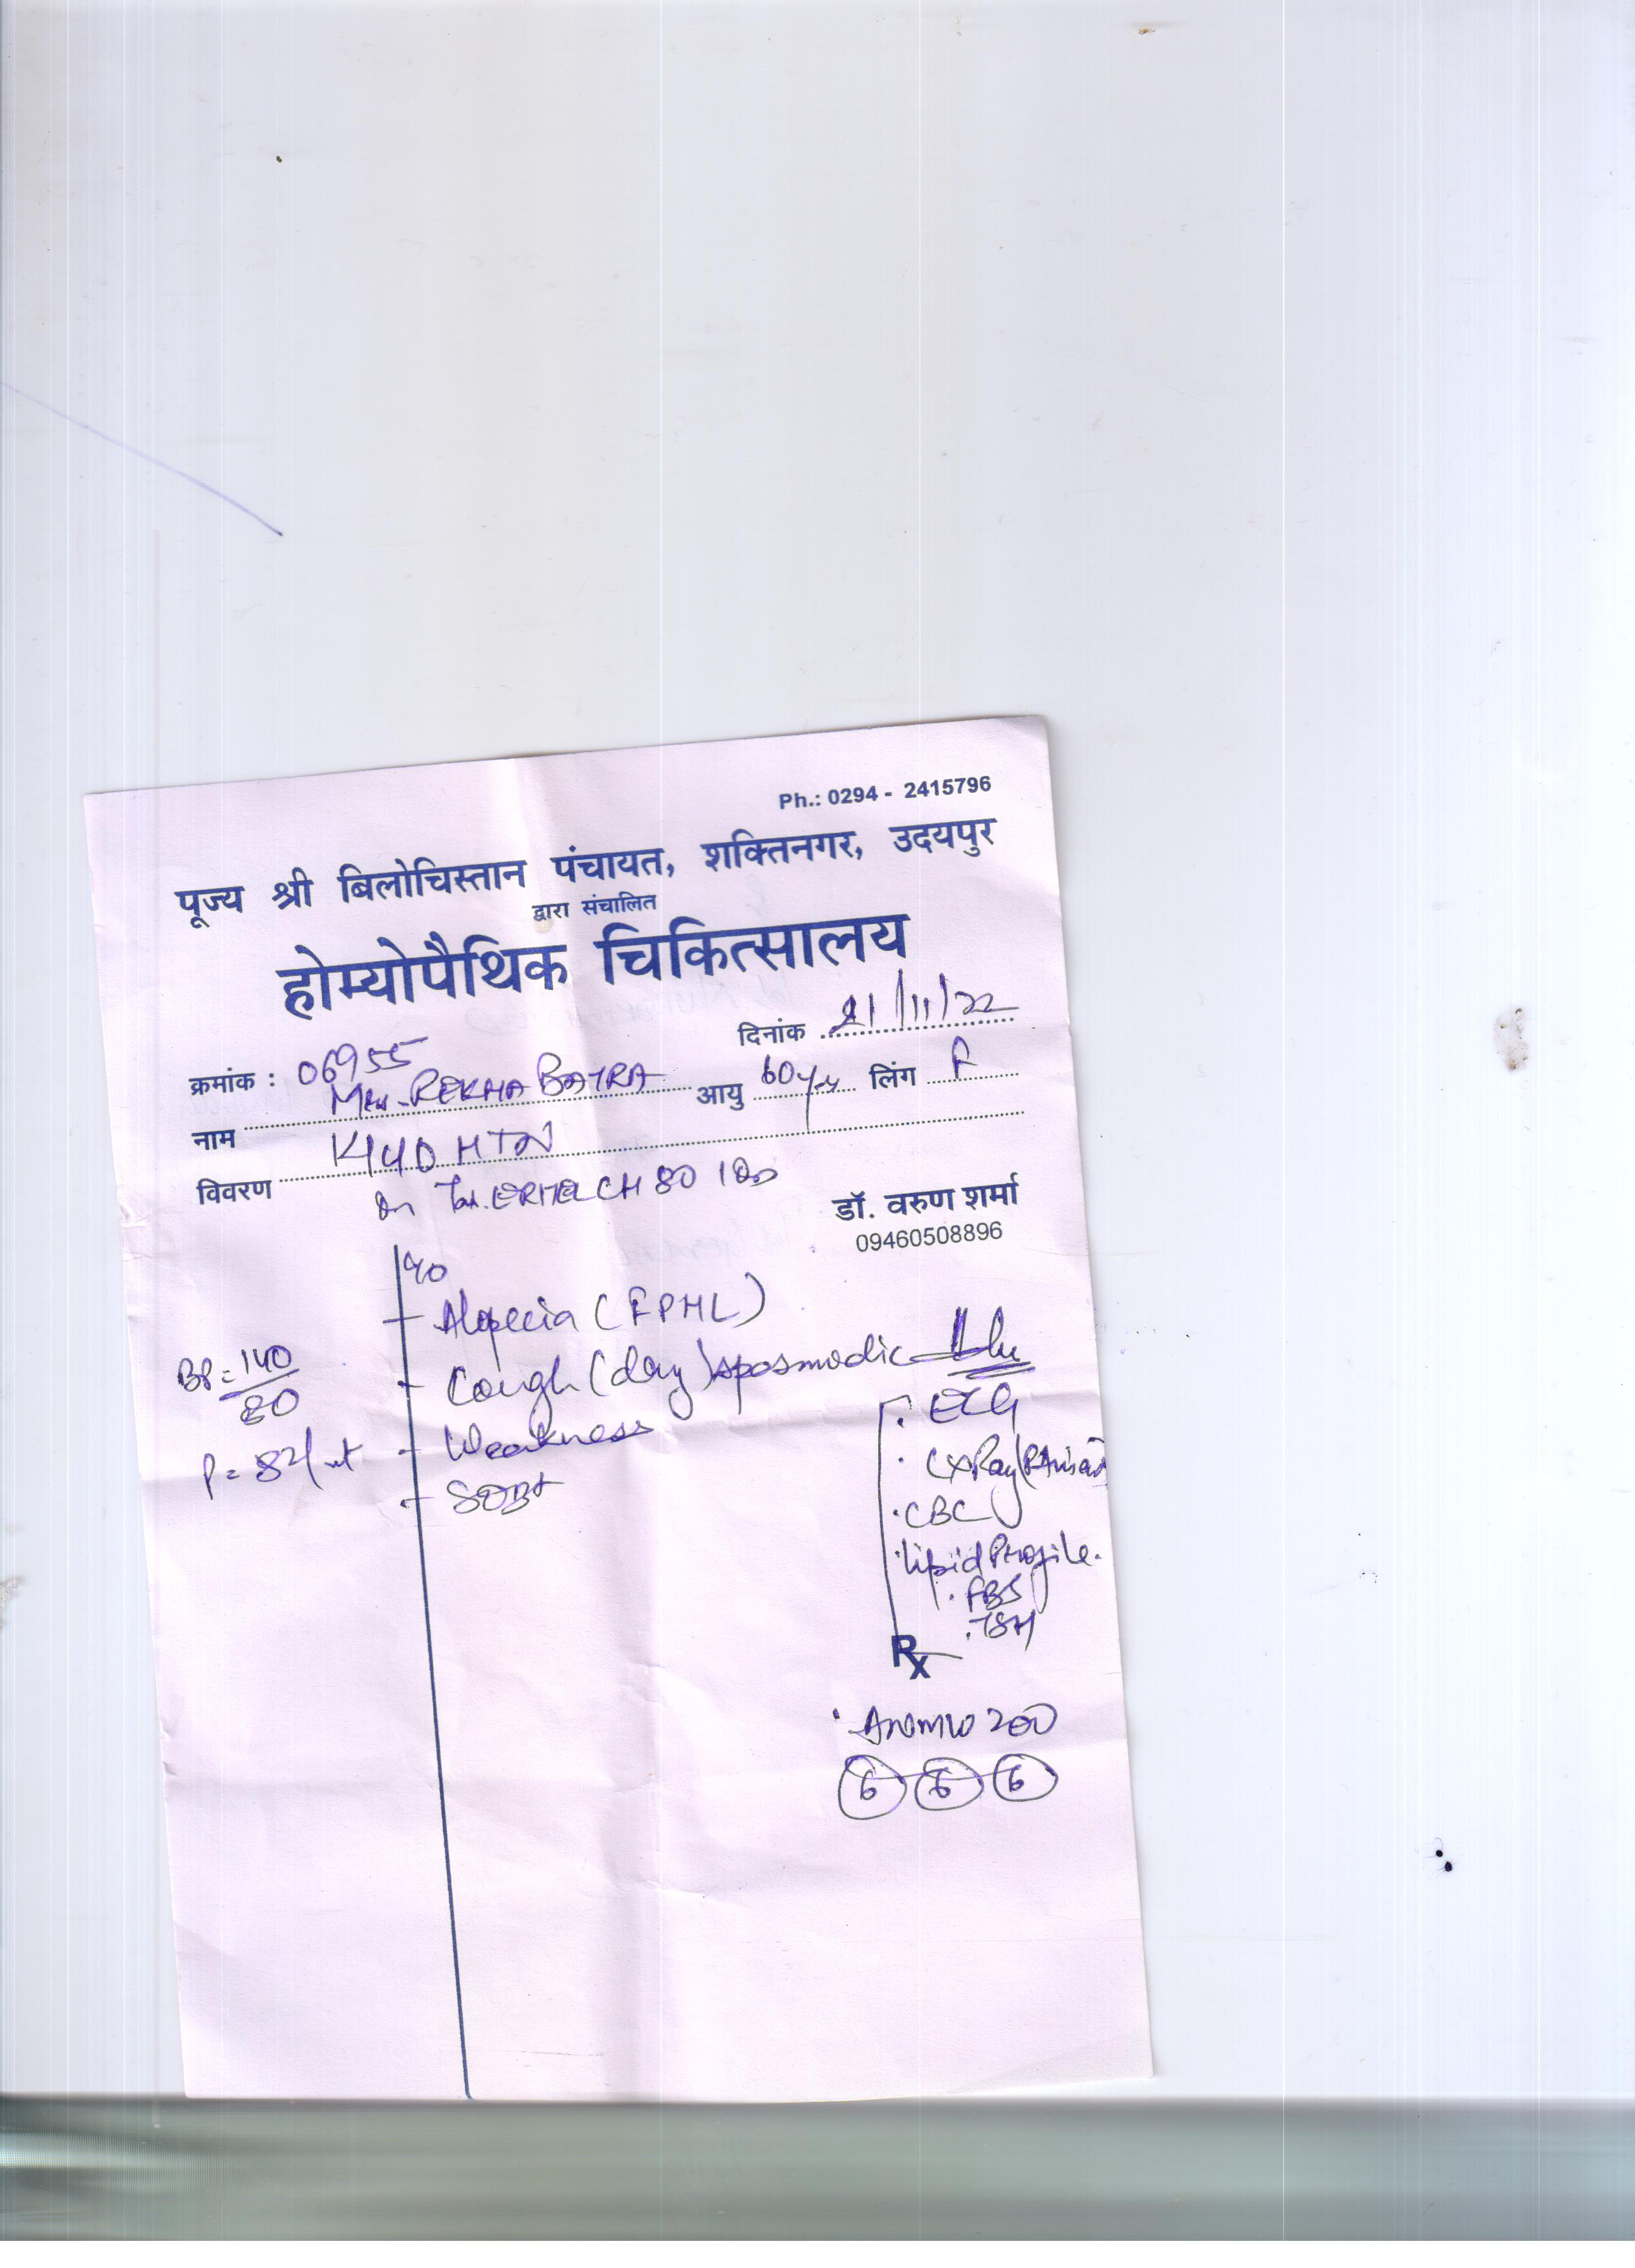 Ph.: 0294 - 2415796
पूज्य श्री बिलोचिस्तान पंचायत, शक्तिनगर, उदयपुर
द्वारा संचालित
होम्योपैथिक चिकित्सालय
दिनांक 21/11/22
क्रमांक : 06955
नाम Mrs. REKHA BATRA आयु 60yrs लिंग F
विवरण K/4/0 HTN
on Tab. ERITEL CH 80 1 OD
डॉ. वरुण शर्मा
09460508896
c/o
- Alopecia (FPHL)
- Cough (dry) spasmodic
- Weakness
- SOB+
BP = 140/80
P = 82/mt
Adv
. ECG
. CXRay (PA view)
. CBC
. Lipid Profile.
. FBS
. TSH
Rx
200
6 6 6